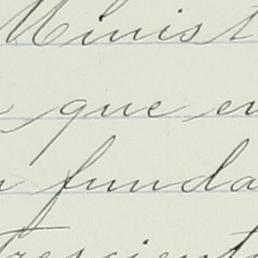 Minist
que en
funda
trescient